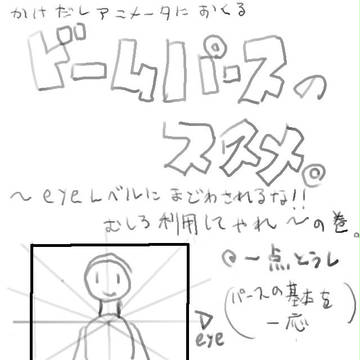 かけだしアニメータにおくる
ドームパースの
ススメ。
～eyeレベルにまどわされるな!!
むしろ利用してやれ～の巻。
@一点とうし
(パースの基本を
一応)
eye